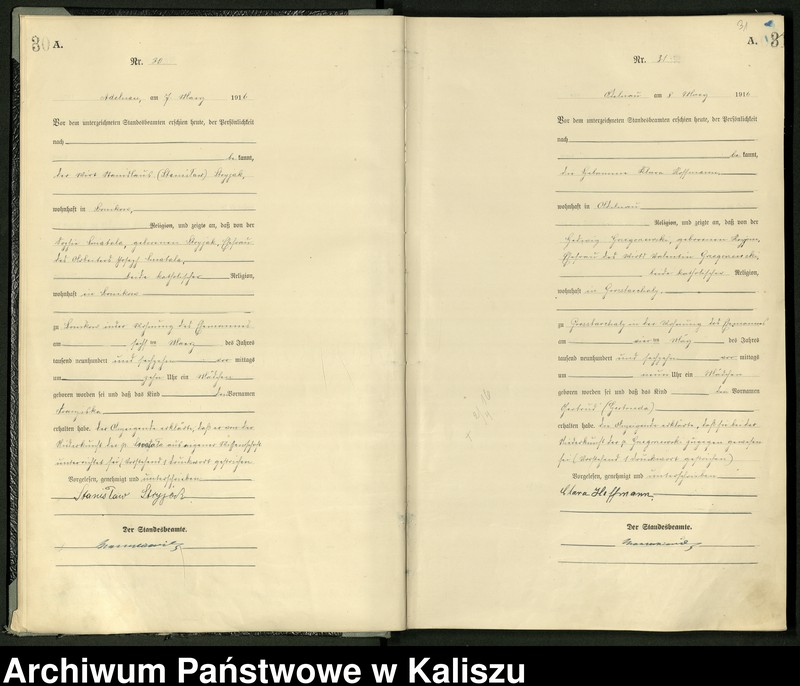 30 A.
Nr. 30
Adelnau, am 7 März 1916
Vor dem unterzeichneten Standesbeamten erschien heute, der Persönlichkeit
nach
be kannt,
der Wirt Stanislaus (Stanisław) Stryjak,
wohnhaft in
Religion, und zeigte an, daß von der
geborenen Stryjak, Ehefrau
des Joseph
beide katholischer Religion,
wohnhaft in
zu in der Wohnung des Ehemannes
am sechs ten März des Jahres
tausend neunhundert und sechzehn vor mittags
um zehn Uhr ein Mädchen
geboren worden sei und daß das Kind den Vornamen
Franziska
erhalten habe. der Anzeigende erklärte, daß er von der
Niederkunft der p. aus eigener Wissenschaft
unterrichtet sei. (Vorstehend 1 Druckwort gestrichen
Vorgelesen, genehmigt und unterschrieben
Stanisław Stryjak
Der Standesbeamte.
31
A. 3
Nr. 31
Adelnau am 8 März 1916
Vor dem unterzeichneten Standesbeamten erschien heute, der Persönlichkeit
nach
be kannt,
die Hebamme Klara Hoffmann
wohnhaft in Adelnau
Religion, und zeigte an, daß von der
Hedwig geborenen
Ehefrau des Wirts Valentin
beide katholischer Religion,
wohnhaft in
zu in der Wohnung des Ehemannes
am ten März des Jahres
tausend neunhundert und sechzehn vor mittags
um neun Uhr ein Mädchen
geboren worden sei und daß das Kind den Vornamen
Gertrud
erhalten habe. die Anzeigende erklärte, daß sie bei der
Niederkunft der p. zugegen gewesen
sei (Vorstehend 1 Druckwort gestrichen)
Vorgelesen, genehmigt und unterschrieben
Clara Hoffmann
Der Standesbeamte.
Archiwum Państwowe w Kaliszu